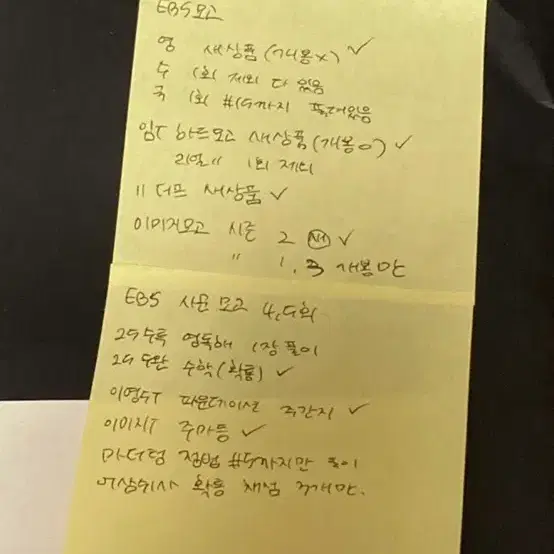 EBS모고
영 새상품(개봉x) ✓
수 1회 제외 다 있음
국 1회 #15까지 풀려있음
임T 하트모고 새상품(개봉o) ✓
리얼〃 1회 제외
〃 더프 새상품 ✓
이미지모고 시즌 2 새 ✓
〃 1, 3 개봉만
EBS 사문 모고 4,5회
25수특 영독해 1장 풀이
25수완 수학(확통) ✓
이영수T 파운데이션 주간지 ✓
이미지T 주마등 ✓
마더텅 #5까지만 풀이
확통 채점 3개만.